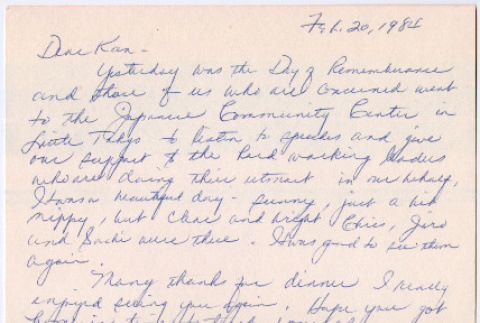 Feb. 20, 1984
Dear Kan -
Yesterday was the Day of Remembrance
and those of us who are concerned went
to the Japanese Community Center in
Little Tokyo to listen to speeches and give
our support to the hard working leaders
who are doing their utmost in our behalf.
It was a beautiful day - sunny, just a bit
nippy, but clear and bright. Chris, Jiro
and Sachi were there. It was good to see them
again.
Many thanks for dinner. I really
enjoyed seeing you again. Hope you've got